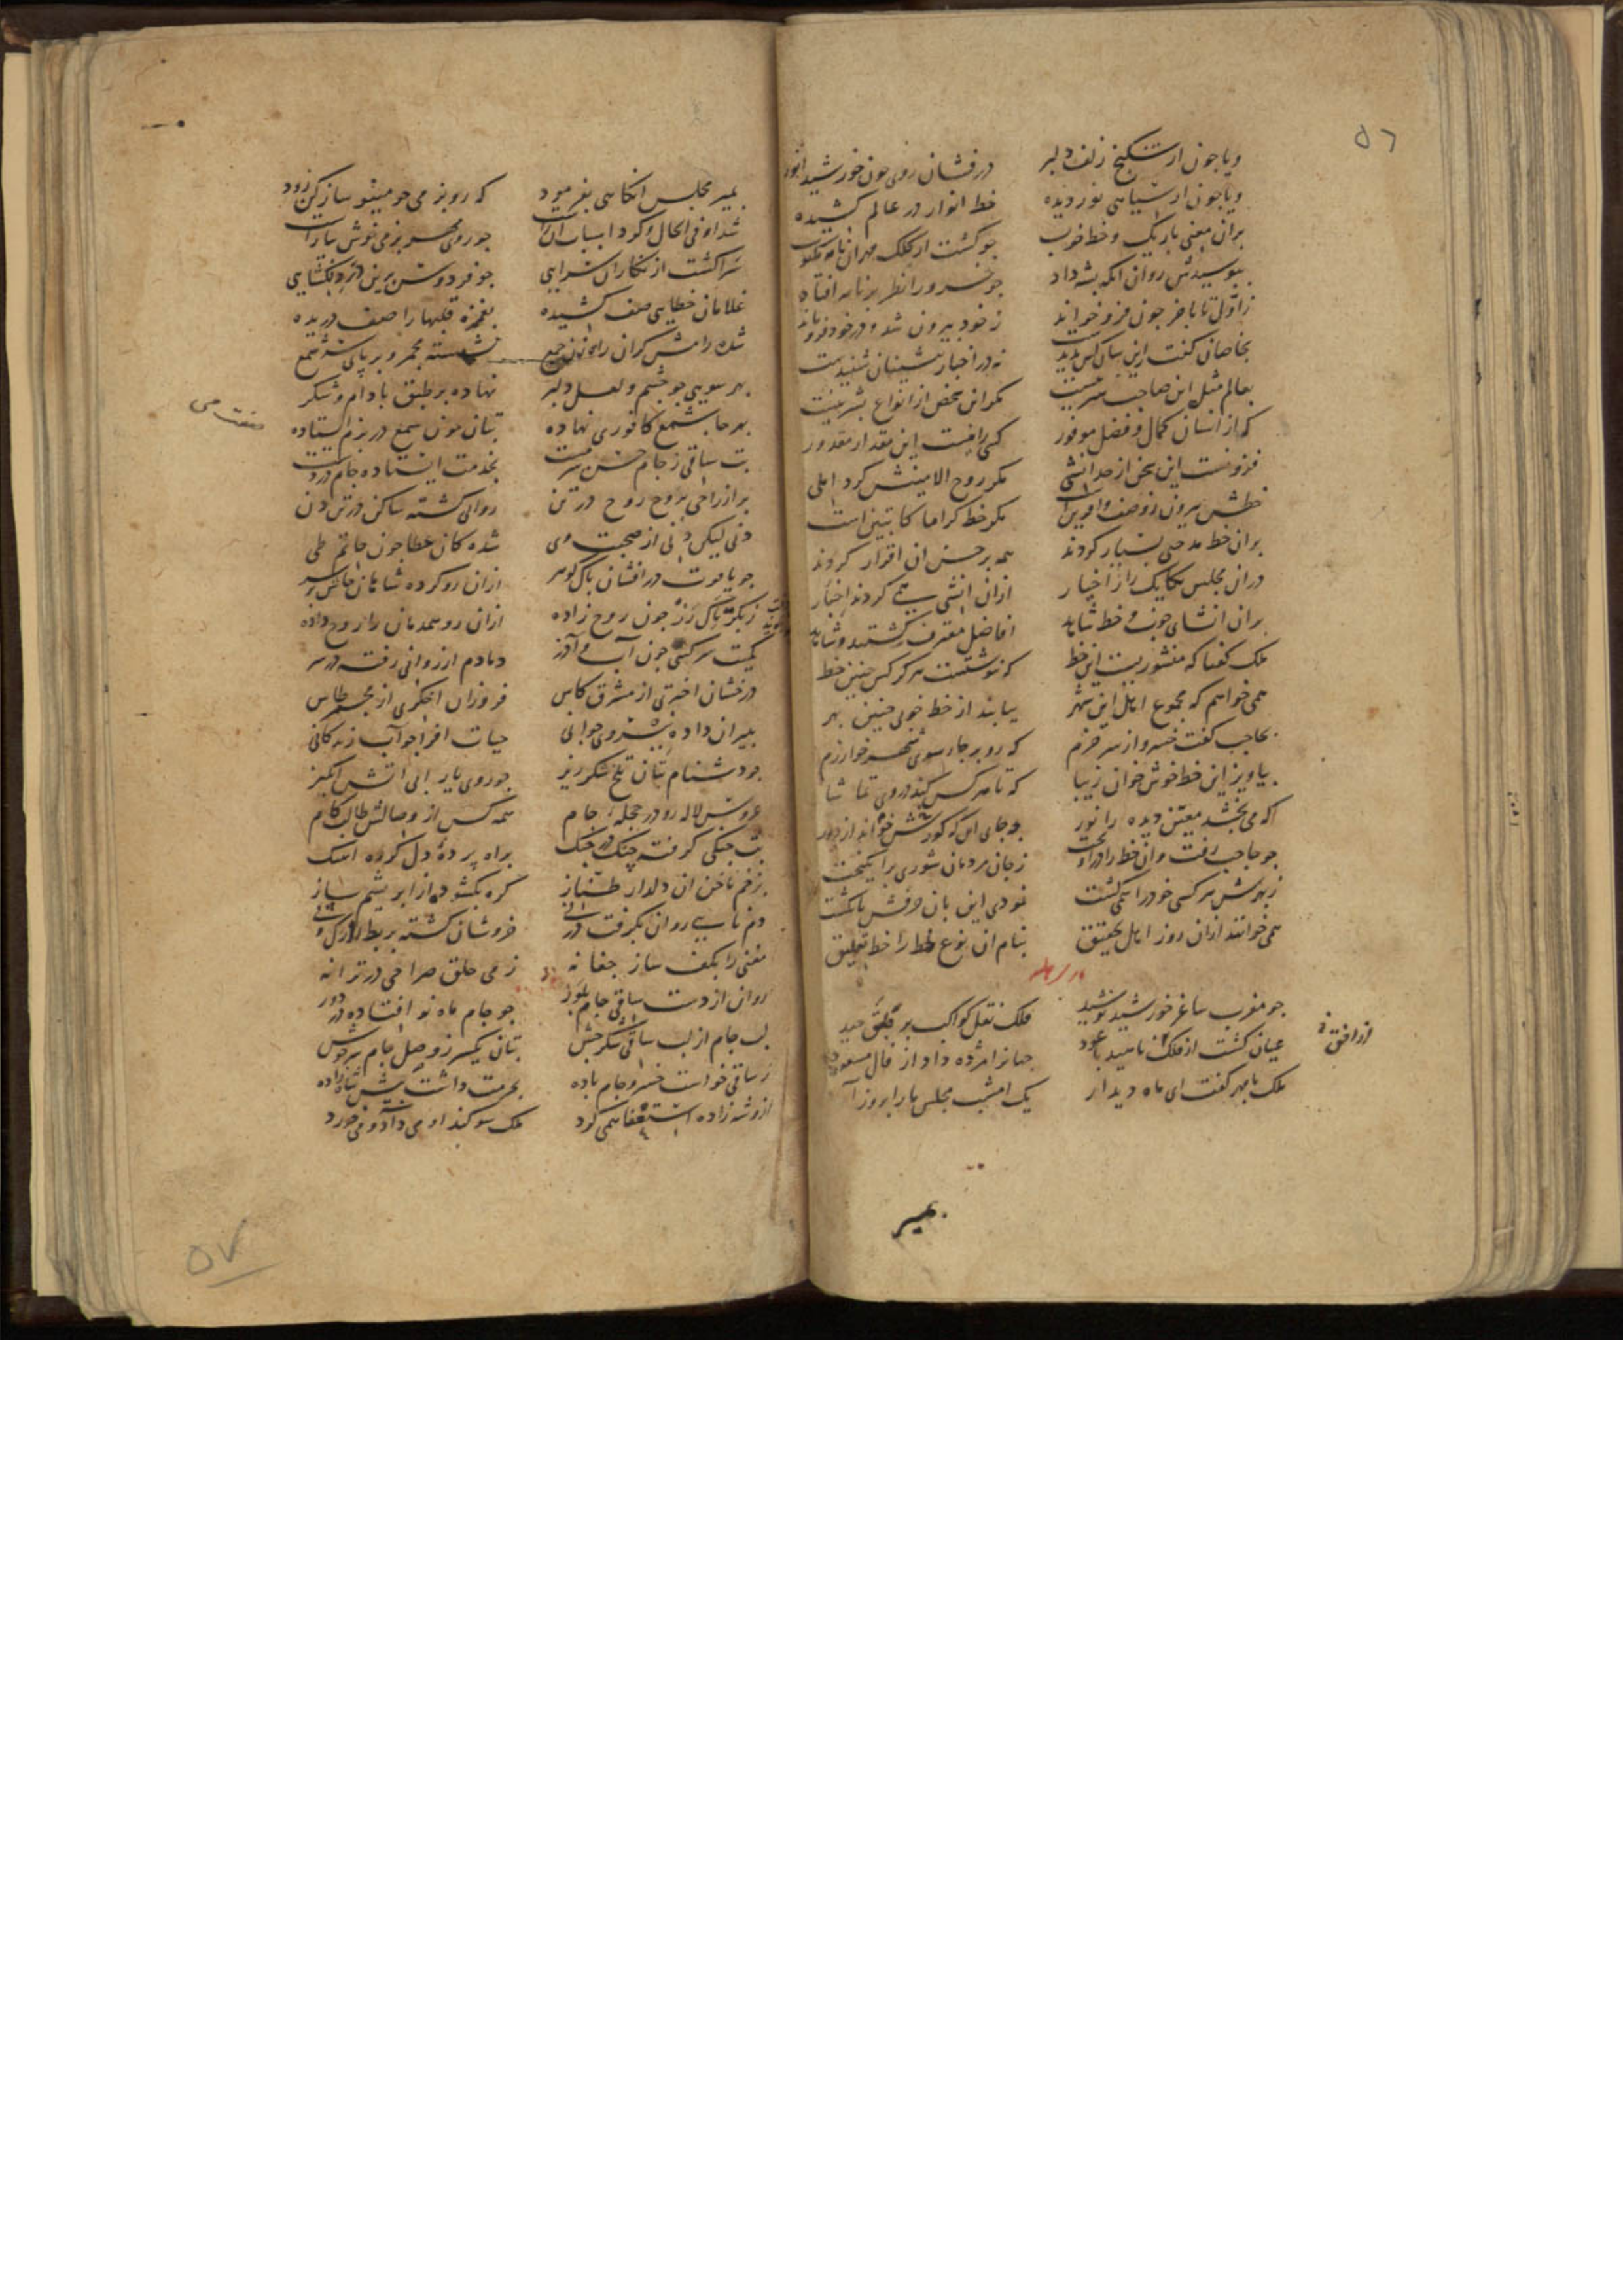 ۵۶
ویا چون از شکنج زلف دلبر درفشان روی چون خورشید انور
ویا چون از سیاهی نور دیده خط انوار در عالم کشیده
بران معنی باریک و خط خوب چو گشت از کلک مهران نامه مکتوب
ببوسیدش روان انگه بشه داد چو خسرو را نظر بر نامه افتاد
ز اول تا باخر چون فرو خواند ز خود بیرون شد و در خود فرو ماند
بخاصان گفت این سان کس ندیدست نه در اخبار پیشینان شنیدست
بعالم مثل این صاحب هنر نیست مگر این شخص از انواع بشر نیست
که از انسان کمال و فضل موفور کسی را نیست این مقدار مقدور
فزونست این سخن از حد انشی مگر روح الامینش کرد املی
خطش بیرون ز وصف و آفرین است مگر خط کراما کاتبین است
بران خط مدحتی بسیار کردند همه بر حسن ان اقرار کردند
دران مجلس یکایک را ز اخیار ازان انشی همی کردند اخبار
بران انشای خوب و خط شاپور افاضل معترف گشتند
ملک گفتا که منشوریست این خط که ننوشتست هرگز کس چنین خط
همی خواهم که مجموع اهل این شهر بیابند از خط خوبی چنین بهر
بحاجب گفت خسرو از سر حزم که رو بر چارسوی شهر خوارزم
بیاویز این خط خوش خوان زیبا که تا هر کس کند در وی تماشا
که می بخشد معین دیده را نور چه جای آن که کورش خواند از دور
چو حاجب رفت وان خط را در آویخت ز جان مردمان شوری برانگیخت
ز بهرش هر کسی خود را همی کشت نمودی این بان حرفش بانگشت
همی خوانند ازان روز اهل تحقیق بنام ان نوع خط را خط تعلیق
چو مغرب ساغر خورشید نوشید فلک نقل کواکب بر طبق چید
عیان گشت از فلک ناهید با عود جهانرا مژده داد از فال مسعود
ملک با مهر گفت ای ماه دیدار یک امشب مجلس ما را بروز آر
از افق
بمیر
بمیر مجلس انگاهی بفرمود که رو بزمی چو مینو ساز کن زود
شد او فی الحال و کرد اسباب آن راست چو روی مهر بزمی خوش بیاراست
سرا گشت از نگاران سرایی چو فردوس برین در دلگشایی
غلامان خطایی صف کشیده بغمزه قلبها را صف دریده
شده رامش گران را زن جمع نشسته مجمر و بر پای شه شمع
بهر سویی چو چشم و لعل دلبر نهاده بر طبق بادام و شکر
بهر جا شمع کافوری نهاده بتان چون شمع در بزم ایستاده
صفت می
بت ساقی ز جام حسن سرمست بخدمت ایستاده جام در دست
پر از راحی بروح روح در تن روانی گشته ساکن در تن دن
دنی لیکن دنی از صحبت وی شده کان عطا چون حاتم طی
چو یاقوت درافشان پاک گوهر ازان رو کرده شاهان جاش بر سر
ز بکر پاک رز چون روح زاده ازان رو همدمان را روح داده
کمیت سرکشی چون آب و آذر دمادم ارغوانی رفته در سر
درخشان اختری از مشرق کاس فروزان اخگری از مجمر طاس
بپیران داده نیروی جوانی حیات افزا چو آب زندگانی
چو دشنام بتان تلخ شکر ریز چو روی یار آبی آتش انگیز
عروس لاله رو در حجله جام همه کس از وصالش طالب کام
بت چنگی گرفته چنگ در چنگ براه پرده دل کرده اهنگ
بزخم ناخن ان دلدار طناز گره بگشوده از ابریشم ساز
دم نایی روان بگرفت در نی خروشان گشته بربط را رگ و پی
مغنی را بکف ساز چغانه ز می حلق صراحی در ترانه
روان از دست ساقی جام بلور چو جام ماه نو افتاده در دور
لب جام از لب ساقی شکر چش بتان یکسر ز وصل جام سرخوش
ز ساقی خواست خسرو جام باده بحرمت داشت پیش شاه زاده
ازو شه زاده استعفا همی کرد ملک سوگند او می داد و می خورد
۵۷